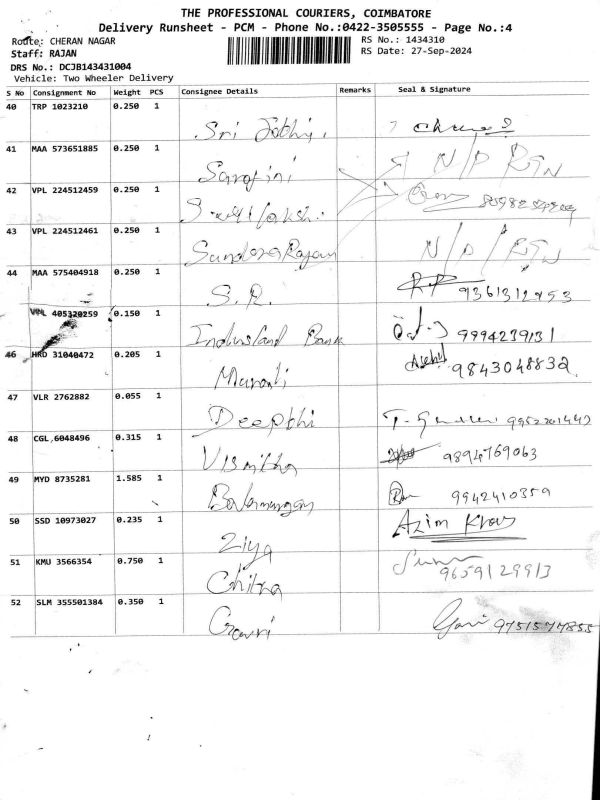 THE PROFESSIONAL COURIERS, COIMBATORE
Delivery Runsheet - PCM - Phone No.:0422-3505555 - Page No.:4
Route: CHERAN NAGAR RS No.: 1434310
Staff: RAJAN RS Date: 27-Sep-2024
DRS No.: DCJB143431004
Vehicle: Two Wheeler Delivery
S No Consignment No Weight PCS Consignee Details Remarks Seal & Signature
40 TRP 1023210 0.250 1
Sri
41 MAA 573651885 0.250 1
Sarojini N/P RTN
42 VPL 224512459 0.250 1
43 VPL 224512461 0.250 1
SundaraRajan N/P/RTN
44 MAA 575404918 0.250 1
S.R. RP
VPL 405320259 0.150 1
Indusland Bank 9994239131
46 HRD 31040472 0.205 1
Murali 9843048832
47 VLR 2762882 0.055 1
Deepthi
48 CGL,6048496 0.315 1
Vismitha 9894769063
49 MYD 8735281 1.585 1
Balamurugan 9942410359
50 SSD 10973027 0.235 1
Ziya Azim Khan
51 KMU 3566354 0.750 1
Chitra 9659129913
52 SLM 355501384 0.350 1
Gowri Gowri 9751577855